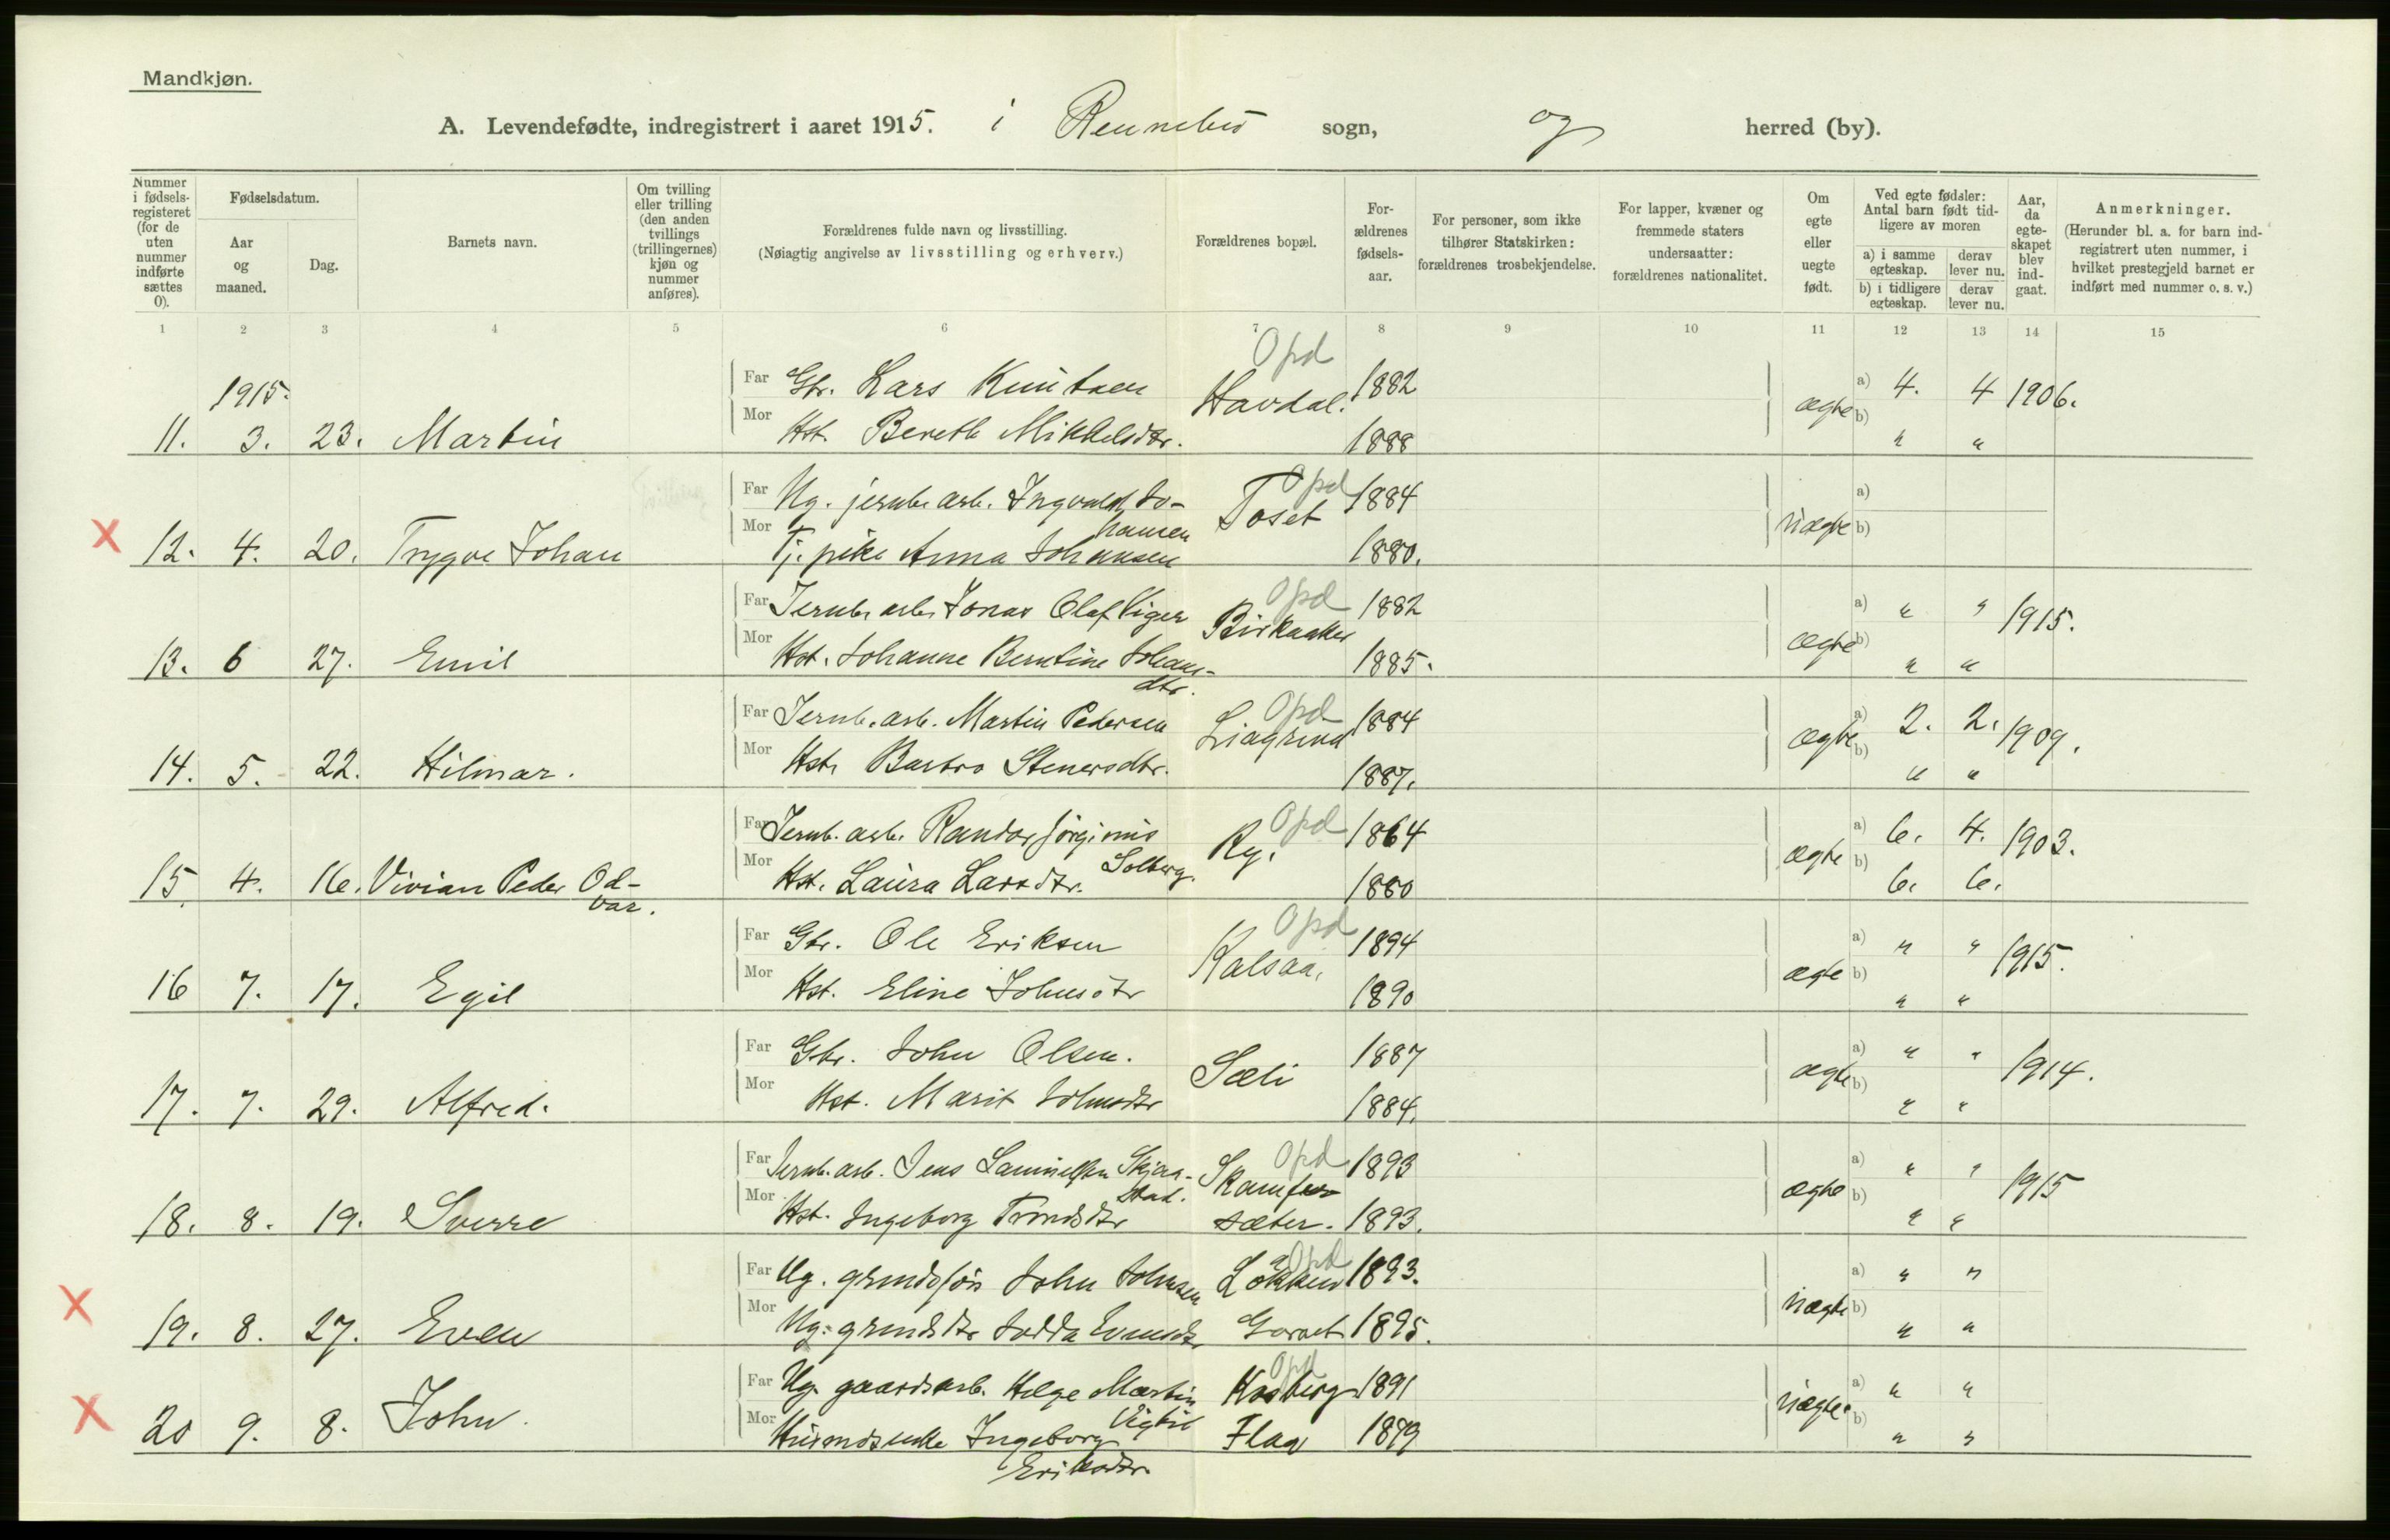 Mandkjøn.
A. Levendefødte, indregistrert i aaret 1915. i Rennebu sogn, og herred (by).
Nummer i fødsels-registeret (for de uten nummer indførte sættes 0).
Fødselsdatum.
Aar og maaned.
Dag.
Barnets navn.
Om tvilling eller trilling (den anden tvillings (trillingernes) kjøn og nummer anføres).
Forældrenes fulde navn og livsstilling.
(Nøiagtig angivelse av livsstilling og erhverv.)
Forældrenes bopæl.
For-ældrenes fødsels-aar.
For personer, som ikke tilhører Statskirken: forældrenes trosbekjendelse.
For lapper, kvæner og fremmede staters undersaatter: forældrenes nationalitet.
Om egte eller uegte født.
Ved egte fødsler: Antal barn født tid-ligere av moren
a) i samme egteskap.
derav lever nu.
b) i tidligere egteskap.
derav lever nu.
Aar, da egte-skapet blev ind-gaat.
Anmerkninger.
(Herunder bl. a. for barn ind-registrert uten nummer, i hvilket prestegjeld barnet er indført med nummer o. s. v.)
1 2 3 4 5 6 7 8 9 10 11 12 13 14 15
Opd
1915.
Far Gbr. Lars Knutsen Havdal. 1882 a) 4. 4 1906.
11. 3. 23. Martin Mor Hst. Bereth Mikkelsdtr. 1888 ægte b) " "
Tvilling
Far Ug. jernb. arb. Ingvald Jo-hansen Toset Opd 1884 a)
X 12. 4. 20. Trygve Johan Mor Tj. pike Anna Johansen 1880. uægte b)
Far Jernb. arb. Jonas Olaf Viger Birkaaker Opd 1882 a) " " 1915.
13. 6 27. Emil Mor Hst. Johanne Berntine Johans-dtr. 1885. ægte b) " "
Far Jernb. arb. Martin Pedersen Liagrend Opd 1884 a) 2. 2. 1909.
14. 5. 22. Hilmar. Mor Hst. Bastro Stenersdtr. 1887. ægte b) " "
Far Jernb. arb. Randor Jørginus Solberg. Ry. Opd 1864 a) 6. 4. 1903.
15 4. 16. Vivian Peder Od-var. Mor Hst. Laura Larsdtr. 1880 ægte b) 6. 6.
Far Gbr. Ole Eriksen Kalsaa. Opd 1894 a) " " 1915.
16 7. 17. Egil Mor Hst. Eline Johnsdtr 1890 ægte b) " "
Far Gbr. John Olsen. Sæli 1887 a) " " 1914.
17. 7. 29. Alfred. Mor Hst. Marit Johnsdtr 1884. ægte b) " "
Far Jernb. arb. Jens Samuelsen Skjaa-stad. Skamfer Opd 1893 a) " " 1915
18. 8. 19. Sverre Mor Hst. Ingeborg Trondsdtr sæter. 1893. ægte b) " "
Far Ug. grmdssøn John Johnsen Løkken Opd 1893. a) " "
X 19. 8. 27. Even Mor Ug. grmdsdtr Evensdtr Gorset 1895. uægte b) " "
Far Ug. gaardsarb. Helge Martin Vigtil Kosberg Opd 1891 a) " "
X 20 9. 8. John. Mor Husmdsenke Ingeborg Eriksdtr. Flaa 1879 uægte. b) " "